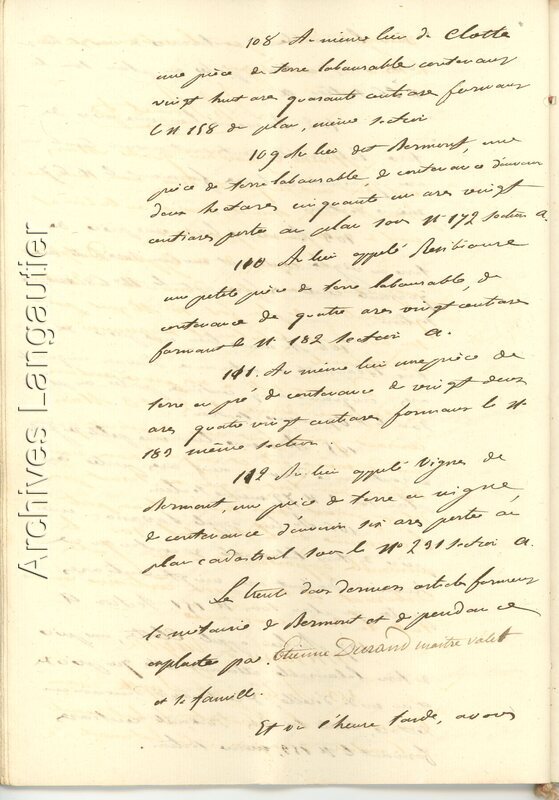 108 Au même lieu de Clotte
une pièce de terre labourable contenant
vingt huit ares quarante centiares formant
le n° 158 du plan, même section
109 Au lieu de Bermont, une
pièce de terre labourable, de contenance d'environ
deux hectares cinquante un ares vingt
centiares porté au plan sous n° 172 section A.
110 Au lieu appelé
une petite pièce de terre labourable, de
contenance de quatre ares vingt centiares
formant le n° 182 section A.
111. Au même lieu une pièce de
terre en pré de contenance de vingt deux
ares quatre vingt centiares formant le n°
183 même section.
112 Au lieu appelé Vignes de
Bermont, une pièce de terre en vigne
de contenance d'environ six ares porté au
plan cadastral sous le n° 291 section A.
Le trente deux derniers articles forment
la métairie de Bermont et dépendance
exploitée par Etienne Durand maitre valet
et sa famille.
Et vu l'heure tarde, avons
Archives Langautier